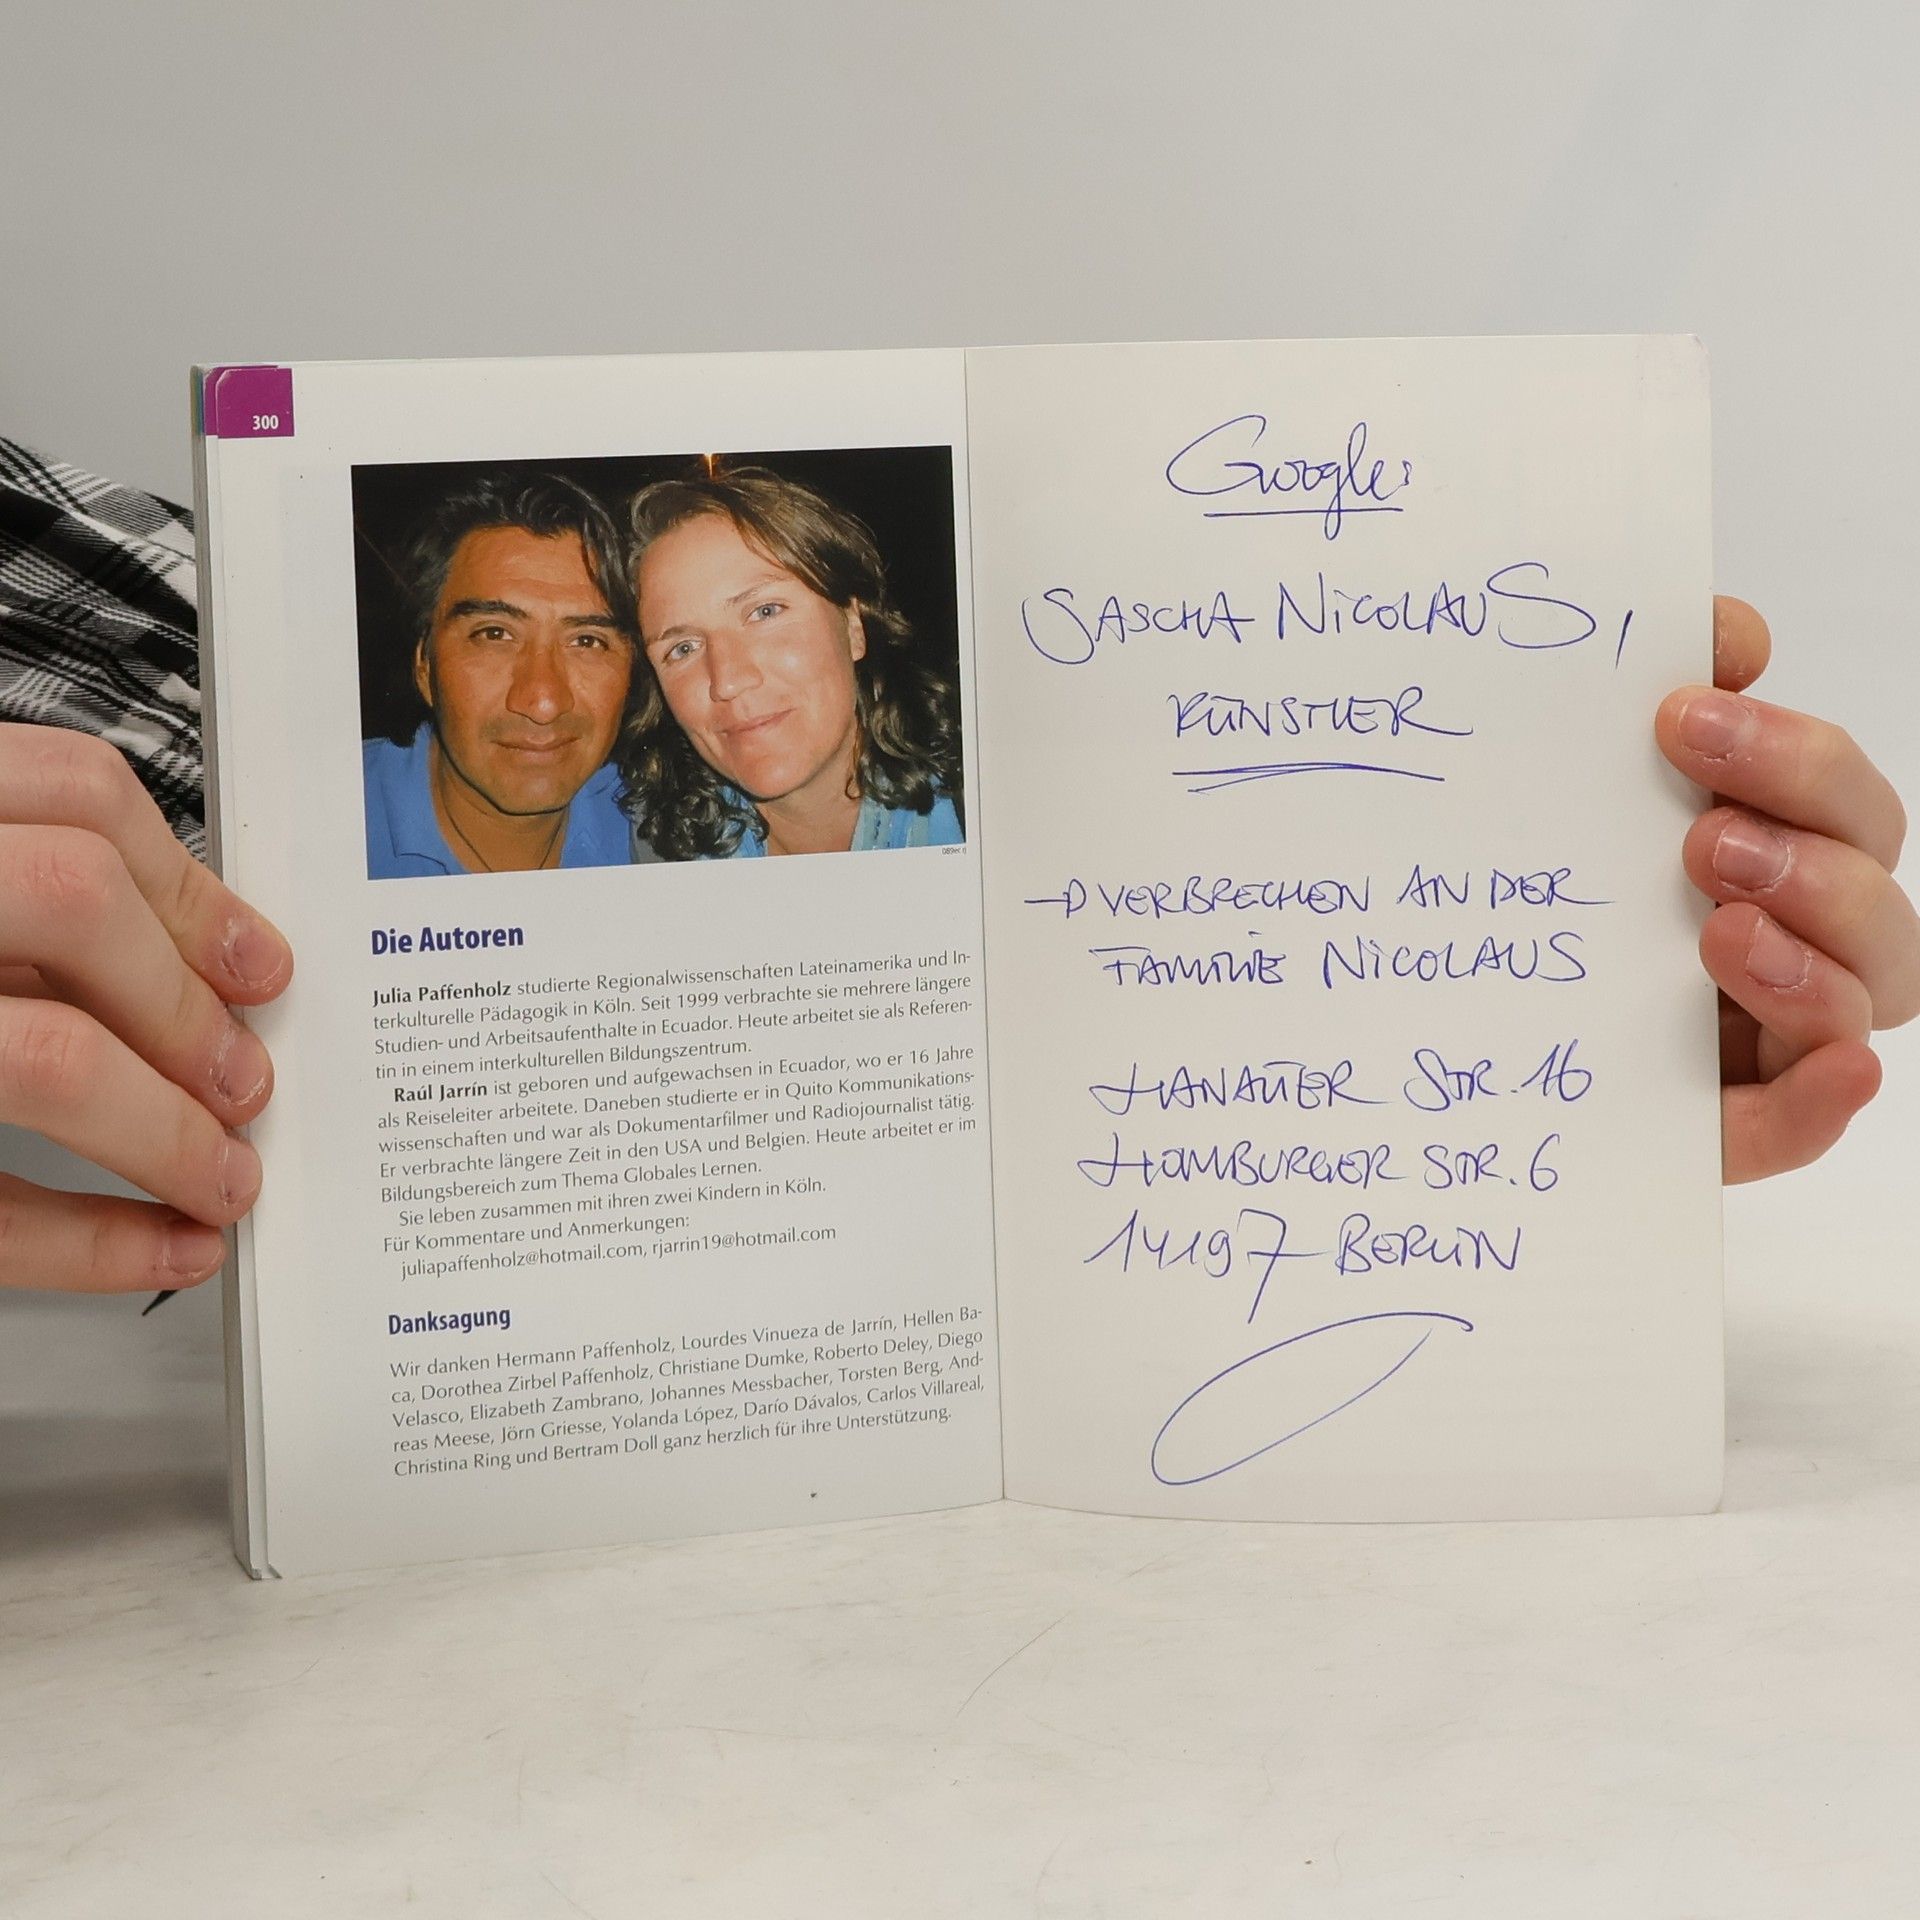 300
089ec rj
Die Autoren
Julia Paffenholz studierte Regionalwissenschaften Lateinamerika und In-
terkulturelle Pädagogik in Köln. Seit 1999 verbrachte sie mehrere längere
Studien- und Arbeitsaufenthalte in Ecuador. Heute arbeitet sie als Referen-
tin in einem interkulturellen Bildungszentrum.
Raúl Jarrín ist geboren und aufgewachsen in Ecuador, wo er 16 Jahre
als Reiseleiter arbeitete. Daneben studierte er in Quito Kommunikations-
wissenschaften und war als Dokumentarfilmer und Radiojournalist tätig.
Er verbrachte längere Zeit in den USA und Belgien. Heute arbeitet er im
Bildungsbereich zum Thema Globales Lernen.
Sie leben zusammen mit ihren zwei Kindern in Köln.
Für Kommentare und Anmerkungen:
juliapaffenholz@hotmail.com, rjarrin19@hotmail.com
Danksagung
Wir danken Hermann Paffenholz, Lourdes Vinueza de Jarrín, Hellen Ba-
ca, Dorothea Zirbel Paffenholz, Christiane Dumke, Roberto Deley, Diego
Velasco, Elizabeth Zambrano, Johannes Messbacher, Torsten Berg, And-
reas Meese, Jörn Griesse, Yolanda López, Darío Dávalos, Carlos Villareal,
Christina Ring und Bertram Doll ganz herzlich für ihre Unterstützung.
Google:
SASCHA NiCOLAUS,
KÜNSTLER
→ VERBRECHEN AN DER
FAMILIE NiCOLAUS
HANAUER STR. 16
HOMBURGER STR. 6
14197 BERLiN